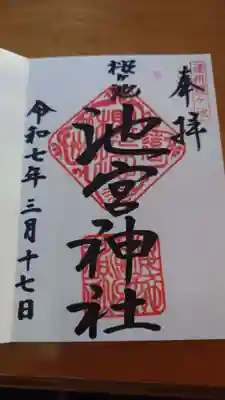 奉拝
桜ヶ池
池宮神社
令和七年三月十七日